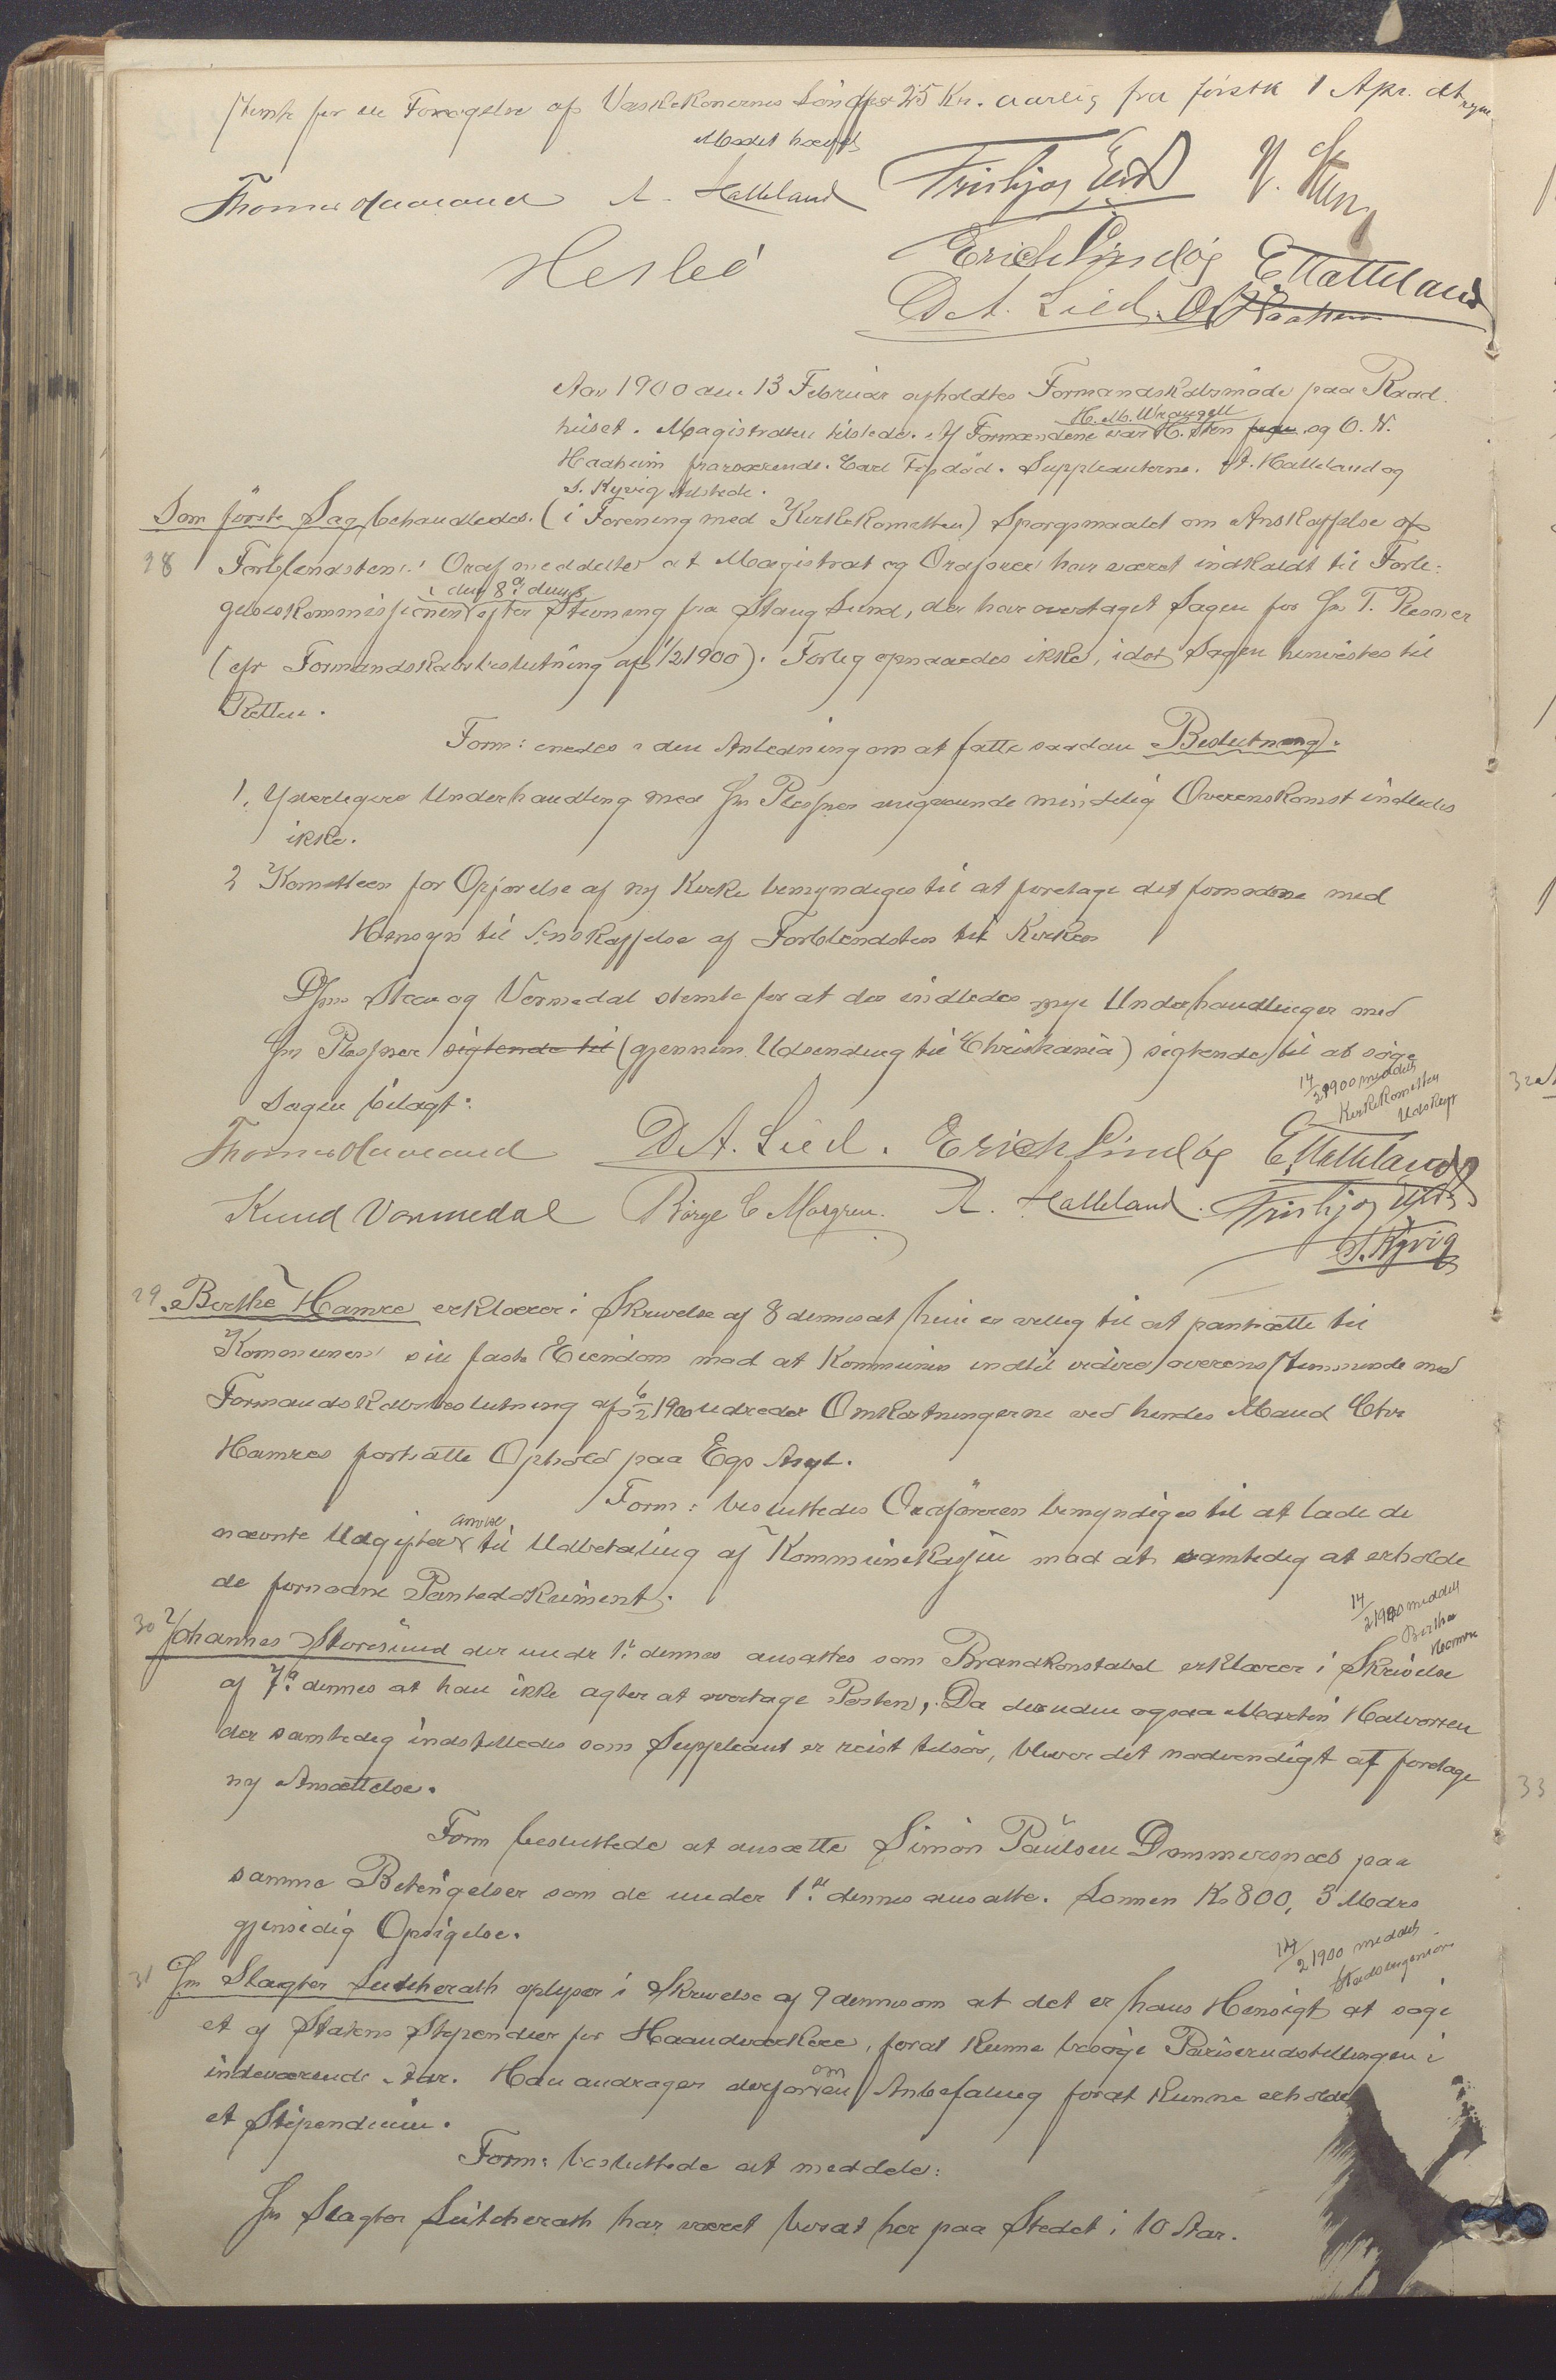 stemte for en Forøgelse af Vaskekonernes Løn 25 Kr. aarlig fra førstk 1 Apr. at regne
Mødet hævet
Thomas Haaland A. Halleland
H. Sten
Erich Lindøe E. Hatteland
D. A. Lied.
Aar 1900 den 13 Februar afholdtes Formandskabsmøde paa Raad
huset. Magistraten tilstede. Af Formændene var H. M. Wrangell H. Sten og O. N.
Haaheim fraværende. Carl død. Suppleanterne A. Halleland og
S. Kyvig tilstede.
Som første Sag behandledes. (i Forening med Kirkekomiteen) Spørgsmaalet om Anskaffelse af
28 Forblendsten. Ordf meddelte at Magistrat og Ordfører har været indkaldt til Forli-
gelseskommissionen i den 8de dennes efter Stevning fra Stang Lund, der har overtaget Sagen for Hr T. Plesner
(cfr Formandskabsbeslutning af 1/2 1900). Forlig opnaaedes ikke, idet Sagen henvistes til
Retten.
Form: enedes i den Anledning om at fatte saadan Beslutning:
1. Yderligere Underhandling med Hr Plesner angaaende mindelig Overenskomst indledes
ikke.
2 Komiteen for Opførelse af ny Kirke bemyndiges til at foretage det fornødne med
Hensyn til Anskaffelse af Forblendsten til Kirken
D'Hrr Sten og Vormedal stemte for at der indledes nye Underhandlinger med
Hr Plesner sigtende til (gjennem Udsending til Christiania) sigtende til at søge
Sagen bilagt.
14/2 1900 meddelt
Kirkekomiteen
Udskrift
Thomas Haaland D. A. Lied. Erich Lindøe E. Hatteland
Knud Vormedal Børge C Mogren. A. Halleland.
S. Kyvig
29. Berthe Hamre erklærer i Skrivelse af 8 dennes at hun er villig til at pantsætte til
Kommunen sin faste Eiendom mod at Kommunen indtil videre overensstemmende med
Formandskabsbeslutning af 6/2 1900 udreder Omkostningerne ved hendes Mand Chr
Hamres fortsatte Ophold paa Egs Asyl.
Form: besluttedes Ordføreren bemyndiges til at lade de
nævnte Udgifter anvise til Udbetaling af Kommunekassen mod at samtidig at erholde
de fornødne Pantedokument.
14/2 1900 meddelt
Berthe
Hamre
30 Johannes Storesund der under 1ste dennes ansattes som Brandkonstabel erklærer i Skrivelse
af 7de dennes at han ikke agter at overtage Posten. Da desuden ogsaa Martin Halvorsen
der samtidig indstilledes som Suppleant er reist tilsøs, bliver det nødvendigt at foretage
ny Ansættelse.
Form besluttede at ansætte Simon Paulsen Dommersnæs paa
samme Betingelser som de under 1ste dennes ansatte. Lønnen Kr 800, 3 Mdrs
gjensidig Opsigelse.
14/2 1900 meddelt
Stadsingeniør
31 Hr Slagter Lutcherath oplyser i Skrivelse af 9 dennes om at det er hans Hensigt at søge
et af Statens Stipendier for Haandværkere, forat kunne besøge Pariserudstillingen i
indeværende Aar. Han andrager derfor om en Anbefaling forat kunne erholde
et Stipendium.
Form: besluttede at meddele:
Hr Slagter Lutcherath har været bosat her paa Stedet i 10 Aar.
33